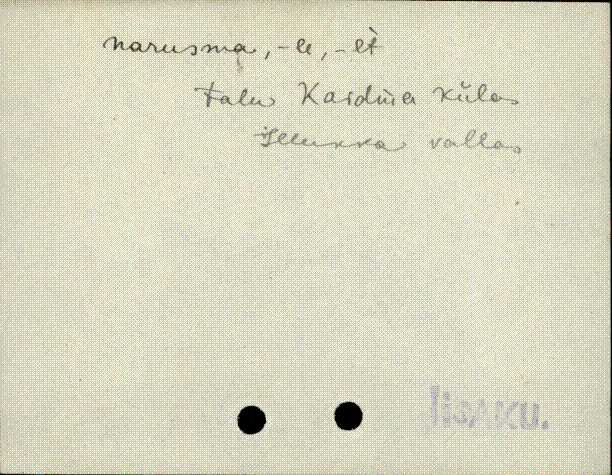 narusma, -le, -lt
talu Kaidma külas
Illukka vallas
Iisaku.